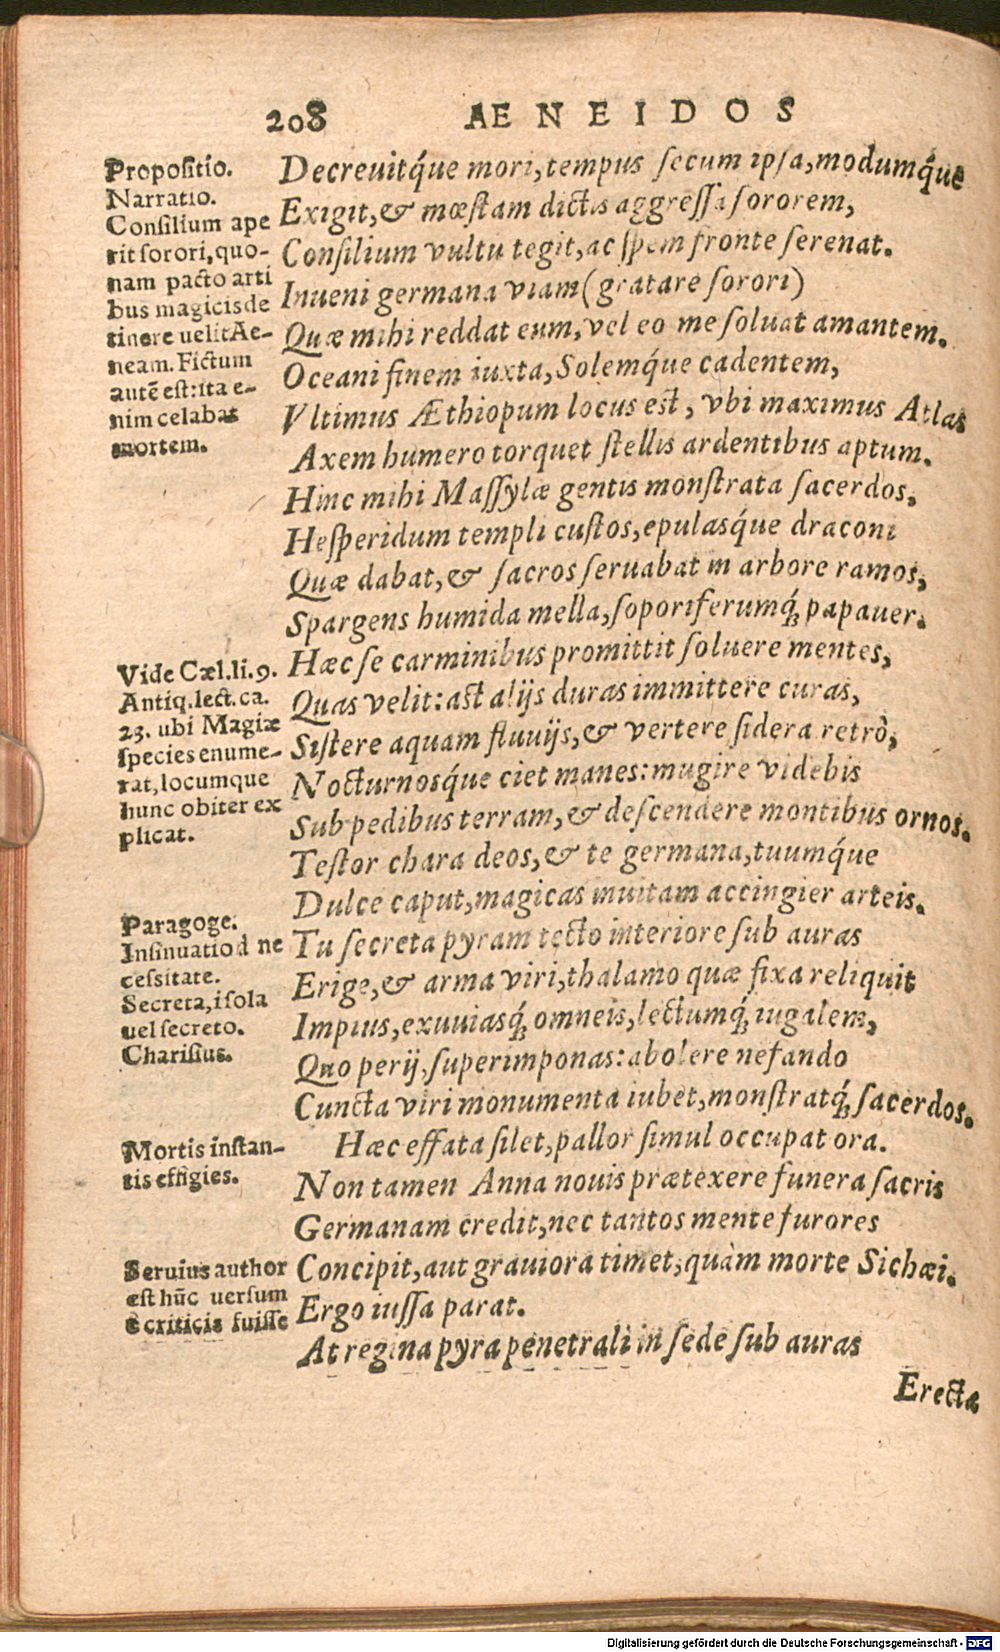 208 AENEIDOS
Propositio.
Narratio.
Consilium ape
rit sorori, quo-
nam pacto arti
bus magicis de
tinere uelit Ae-
neam. Fictum
autē est: ita e-
nim celabat
mortem.
Decreuitq́ue mori, tempus secum ipsa, modumq́ue
Exigit, & mœstam dictis aggressa sororem,
Consilium vultu tegit, ac spem fronte serenat.
Inueni germana viam (gratare sorori)
Quæ mihi reddat eum, vel eo me soluat amantem.
Oceani finem iuxta, Solemq́ue cadentem,
Vltimus Æthiopum locus est, vbi maximus Atlas
Axem humero torquet stellis ardentibus aptum.
Hinc mihi Massylæ gentis monstrata sacerdos,
Hesperidum templi custos, epulasq́ue draconi
Quæ dabat, & sacros seruabat in arbore ramos,
Spargens humida mella, soporiferumq́; papauer.
Vide Cæl. li. 9.
Antiq. lect. ca.
23. ubi Magiæ
species enume-
rat, locumque
hunc obiter ex
plicat.
Hæc se carminibus promittit soluere mentes,
Quas velit: ast alijs duras immittere curas,
Sistere aquam fluuijs, & vertere sidera retrò,
Nocturnosq́ue ciet manes: mugire videbis
Sub pedibus terram, & descendere montibus ornos.
Testor chara deos, & te germana, tuumq́ue
Dulce caput, magicas inuitam accingier arteis.
Paragoge.
Insinuatio à ne
cessitate.
Secreta, i sola
uel secreto.
Charisius.
Tu secreta pyram tecto interiore sub auras
Erige, & arma viri, thalamo quæ fixa reliquit
Impius, exuuiasq́; omneis, lectumq́; iugalem,
Quo perij, superimponas: abolere nefando
Cuncta viri monumenta iubet, monstratq́; sacerdos.
Mortis instan-
tis effigies.
Hæc effata silet, pallor simul occupat ora.
Non tamen Anna nouis prætexere funera sacris
Germanam credit, nec tantos mente furores
Seruius author
est hūc uersum
è criticis fuisse
Concipit, aut grauiora timet, quàm morte Sichæi.
Ergo iussa parat.
At regina pyra penetrali in sede sub auras
Erecta
Digitalisierung gefördert durch die Deutsche Forschungsgemeinschaft - DFG